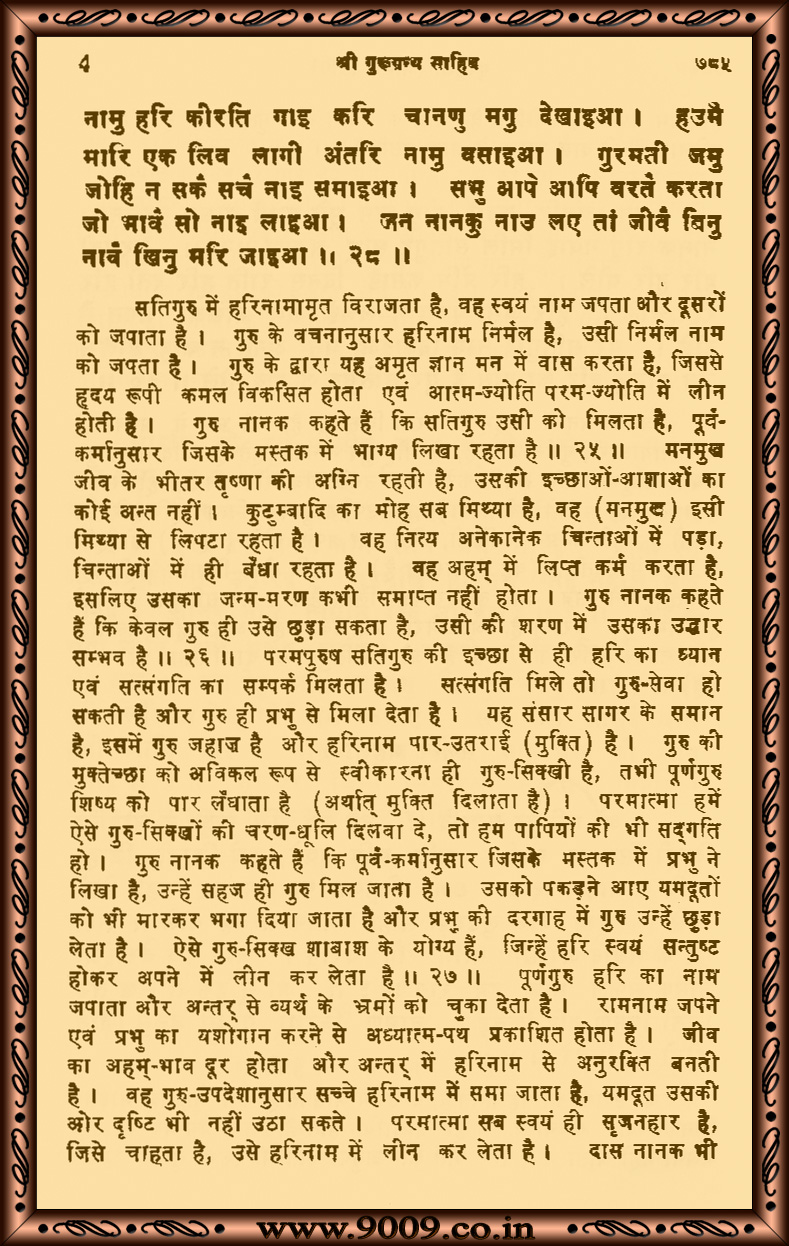 4 श्री गुरूग्रन्थ साहिब ७८५
नामु हरि कीरति गाइ करि चानणु मगु देखाइआ । हउमै
मारि एक लिव लागी अंतरि नामु वसाइआ । गुरमती जमु
जोहि न सकै सचै नाइ समाइआ । सभु आपे आपि वरतै करता
जो भावै सो नाइ लाइआ । जन नानकु नाउ लए तां जीवै बिनु
नावै खिनु मरि जाइआ ।। २८ ।।
सतिगुरु में हरिनामामृत विराजता है, वह स्वयं नाम जपता और दूसरों
को जपाता है । गुरु के वचनानुसार हरिनाम निर्मल है, उसी निर्मल नाम
को जपता है । गुरु के द्वारा यह अमृत ज्ञान मन में वास करता है, जिससे
हृदय रूपी कमल विकसित होता एवं आत्म-ज्योति परम-ज्योति में लीन
होती है । गुरु नानक कहते हैं कि सतिगुरु उसी को मिलता है, पूर्व-
कर्मानुसार जिसके मस्तक में भाग्य लिखा रहता है ॥ २५ ॥ मनमुख
जीव के भीतर तृष्णा की अग्नि रहती है, उसकी इच्छाओं-आशाओं का
कोई अन्त नहीं । कुटुम्बादि का मोह सब मिथ्या है, वह (मनमुख) इसी
मिथ्या से लिपटा रहता है । वह नित्य अनेकानेक चिन्ताओं में पड़ा,
चिन्ताओं में ही बँधा रहता है । वह अहम् में लिप्त कर्म करता है,
इसलिए उसका जन्म-मरण कभी समाप्त नहीं होता । गुरु नानक कहते
हैं कि केवल गुरु ही उसे छुड़ा सकता है, उसी की शरण में उसका उद्धार
सम्भव है ॥ २६ ॥ परमपुरुष सतिगुरु की इच्छा से ही हरि का ध्यान
एवं सत्संगति का सम्पर्क मिलता है । सत्संगति मिले तो गुरु-सेवा हो
सकती है और गुरु ही प्रभु से मिला देता है । यह संसार सागर के समान
है, इसमें गुरु जहाज़ है और हरिनाम पार-उतराई (मुक्ति) है । गुरु की
मुक्तेच्छा को अविकल रूप से स्वीकारना ही गुरु-सिक्खी है, तभी पूर्णगुरु
शिष्य को पार लँघाता है (अर्थात् मुक्ति दिलाता है) । परमात्मा हमें
ऐसे गुरु-सिक्खों की चरण-धूलि दिलवा दे, तो हम पापियों की भी सद्गति
हो । गुरु नानक कहते हैं कि पूर्व-कर्मानुसार जिसके मस्तक में प्रभु ने
लिखा है, उन्हें सहज ही गुरु मिल जाता है । उसको पकड़ने आए यमदूतों
को भी मारकर भगा दिया जाता है और प्रभु की दरगाह में गुरु उन्हें छुड़ा
लेता है । ऐसे गुरु-सिक्ख शाबाश के योग्य हैं, जिन्हें हरि स्वयं सन्तुष्ट
होकर अपने में लीन कर लेता है ॥ २७ ॥ पूर्णगुरु हरि का नाम
जपाता और अन्तर् से व्यर्थ के भ्रमों को चुका देता है । रामनाम जपने
एवं प्रभु का यशोगान करने से अध्यात्म-पथ प्रकाशित होता है । जीव
का अहम्-भाव दूर होता और अन्तर् में हरिनाम से अनुरक्ति बनती
है । वह गुरु-उपदेशानुसार सच्चे हरिनाम में समा जाता है, यमदूत उसकी
ओर दृष्टि भी नहीं उठा सकते । परमात्मा सब स्वयं ही सृजनहार है,
जिसे चाहता है, उसे हरिनाम में लीन कर लेता है । दास नानक भी
www.9009.co.in